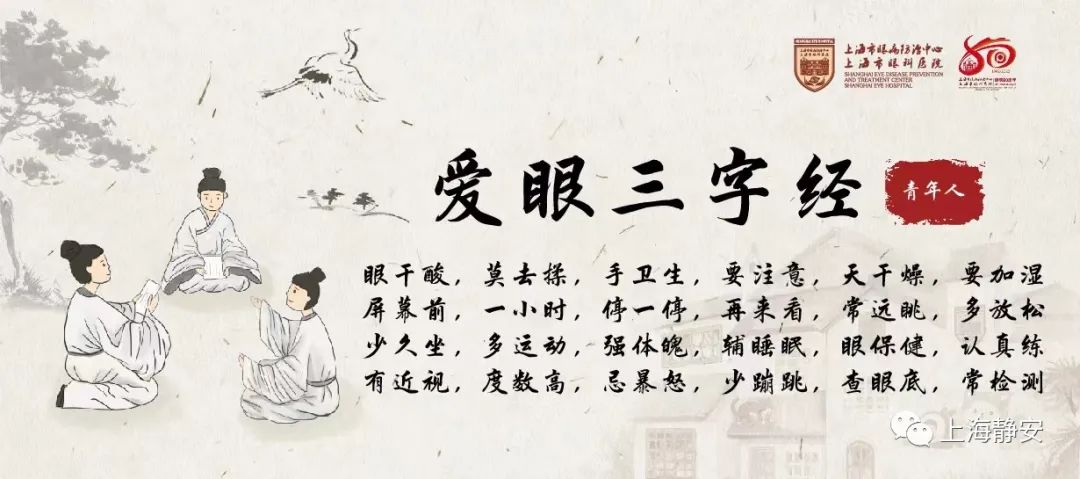 上海市眼病防治中心
上海市眼科医院
SHANGHAI EYE DISEASE PREVENTION
AND TREATMENT CENTER
SHANGHAI EYE HOSPITAL
爱眼三字经
青年人
眼干酸，莫去揉，手卫生，要注意，天干燥，要加湿
屏幕前，一小时，停一停，再来看，常远眺，多放松
少久坐，多运动，强体魄，辅睡眠，眼保健，认真练
有近视，度数高，忌暴怒，少蹦跳，查眼底，常检测
上海静安